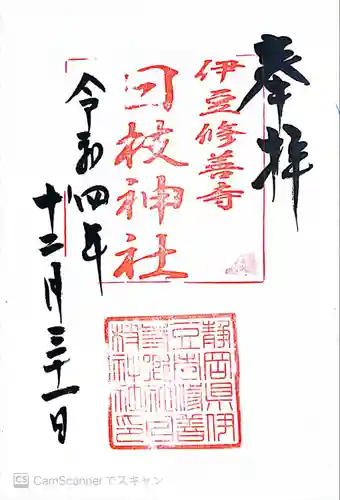 奉拝
伊豆修善寺
日枝神社
令和四年
十二月三十一日
静岡県伊
豆市修善
CS CamScanner でスキャン